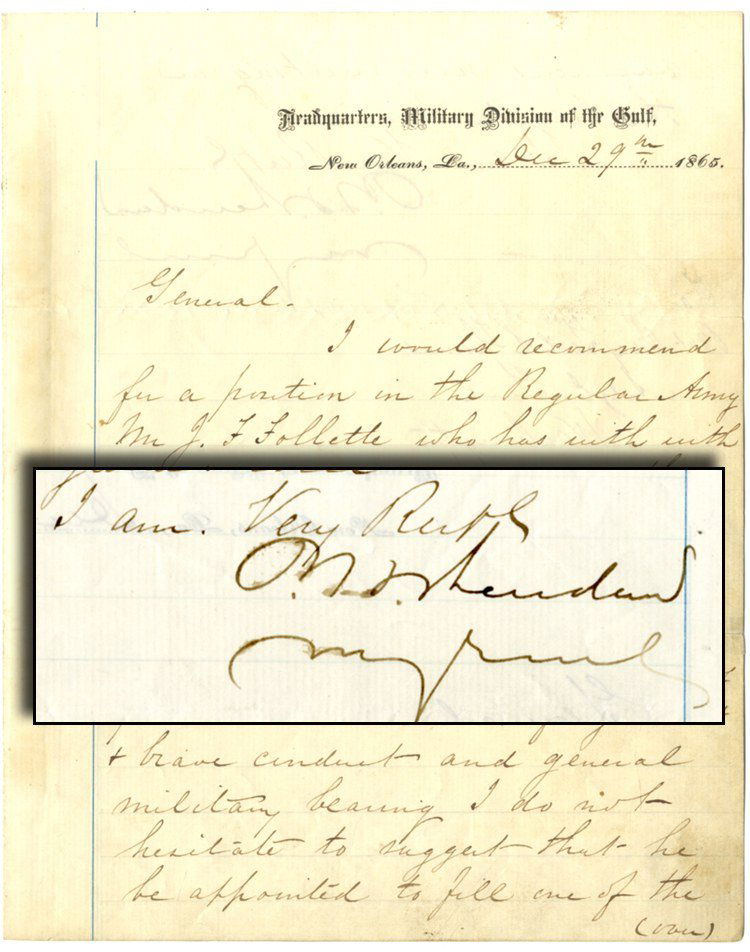 Headquarters, Military Division of the Gulf,
New Orleans, La., Dec 29th 1865.
General.
I would recommend
for a position in the Regular Army
Mr J. F Follette who has with with
I am. Very Respt
P. H. Sheridan
Maj Genl
& brave conduct and general
military bearing I do not
hesitate to suggest that he
be appointed to fill one of the
(over)